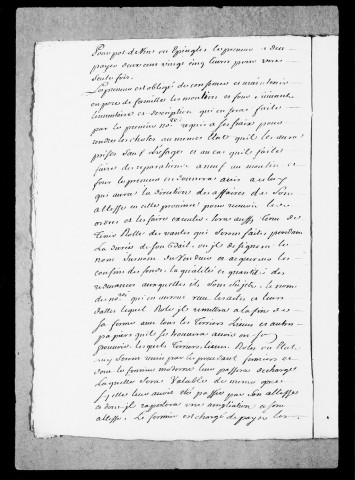 Pour pot de Vin ou Epingles le preneur a deu
payer deux cens vingt cinq livres pour une
seule fois.
Le preneur est obligé de conserver et maintenir
en pere de familles les moulins et fours, suivant
linventaire et description qui en sera faite
par le premier no.re requis a ses frais pour
rendre les choses au meme Etat quil les aura
prises sauf Lusages et au cas quil faille
faire des reparations a neuf au moulin et
four le preneur en donnera avis a celuy
qui aura la direction des affaires de Son
altesse en cette province pour recevoir les
ordres et les faire executer. sera aussy tenu de
tenir Rolle des ventes qui seront faites pendant
La durée de son Bail, ou il designera le
nom surnom du Vendeur et acquereur les
confins des fonds, la qualité et quantité des
redevances auxquelles ils sont sujets, le nom
du no.re qui en aura receu les actes et leur
dattes lequel Role il remettra a la fin de
sa ferme avec tous les Terriers Lieves et autres
papiers quil se trouvera avoir en son
pouvoir, lesquels Terriers, lieves, Roles ou Etat
luy seront remis par le precedant fermier et
dont le fermier moderne leur passera decharge
Laquelle sera Valable de meme que
si elle leur avoit eté passée par Son altesse
et dont il raportera une ampliation a son
altesse. Le fermier est chargé de payer les